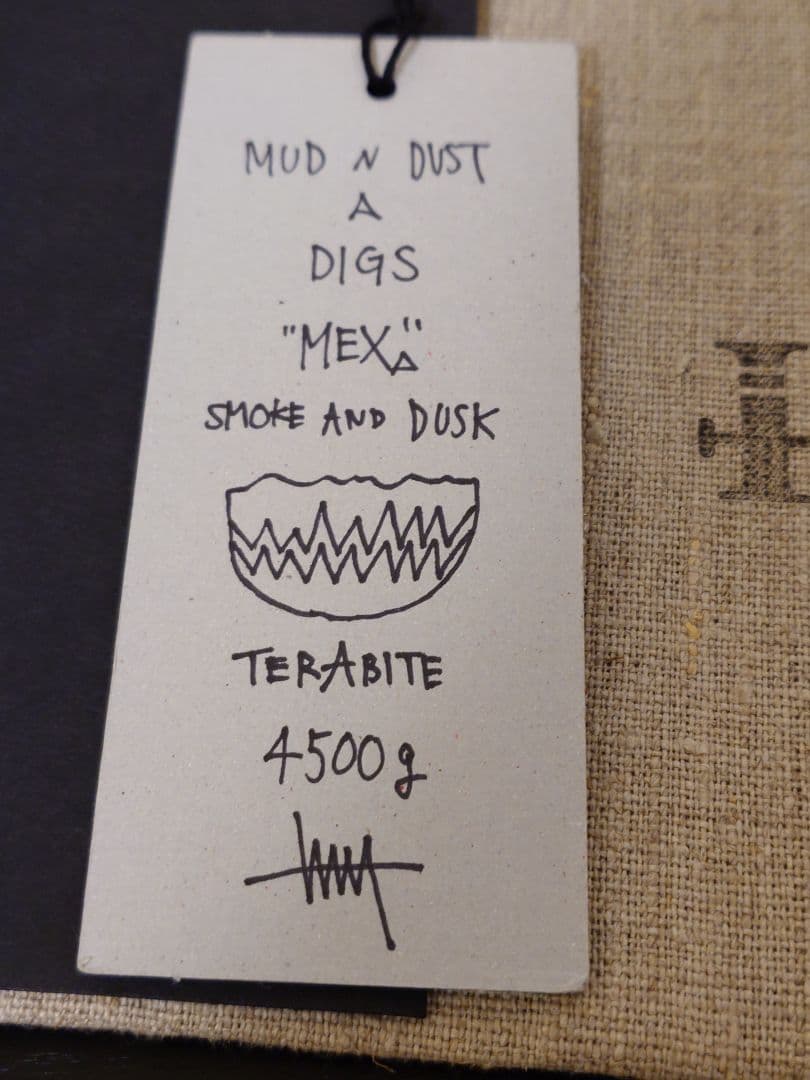 MUD N DUST
A
DIGS
"MEXA"
SMOKE AND DUSK
TERABITE
4500g